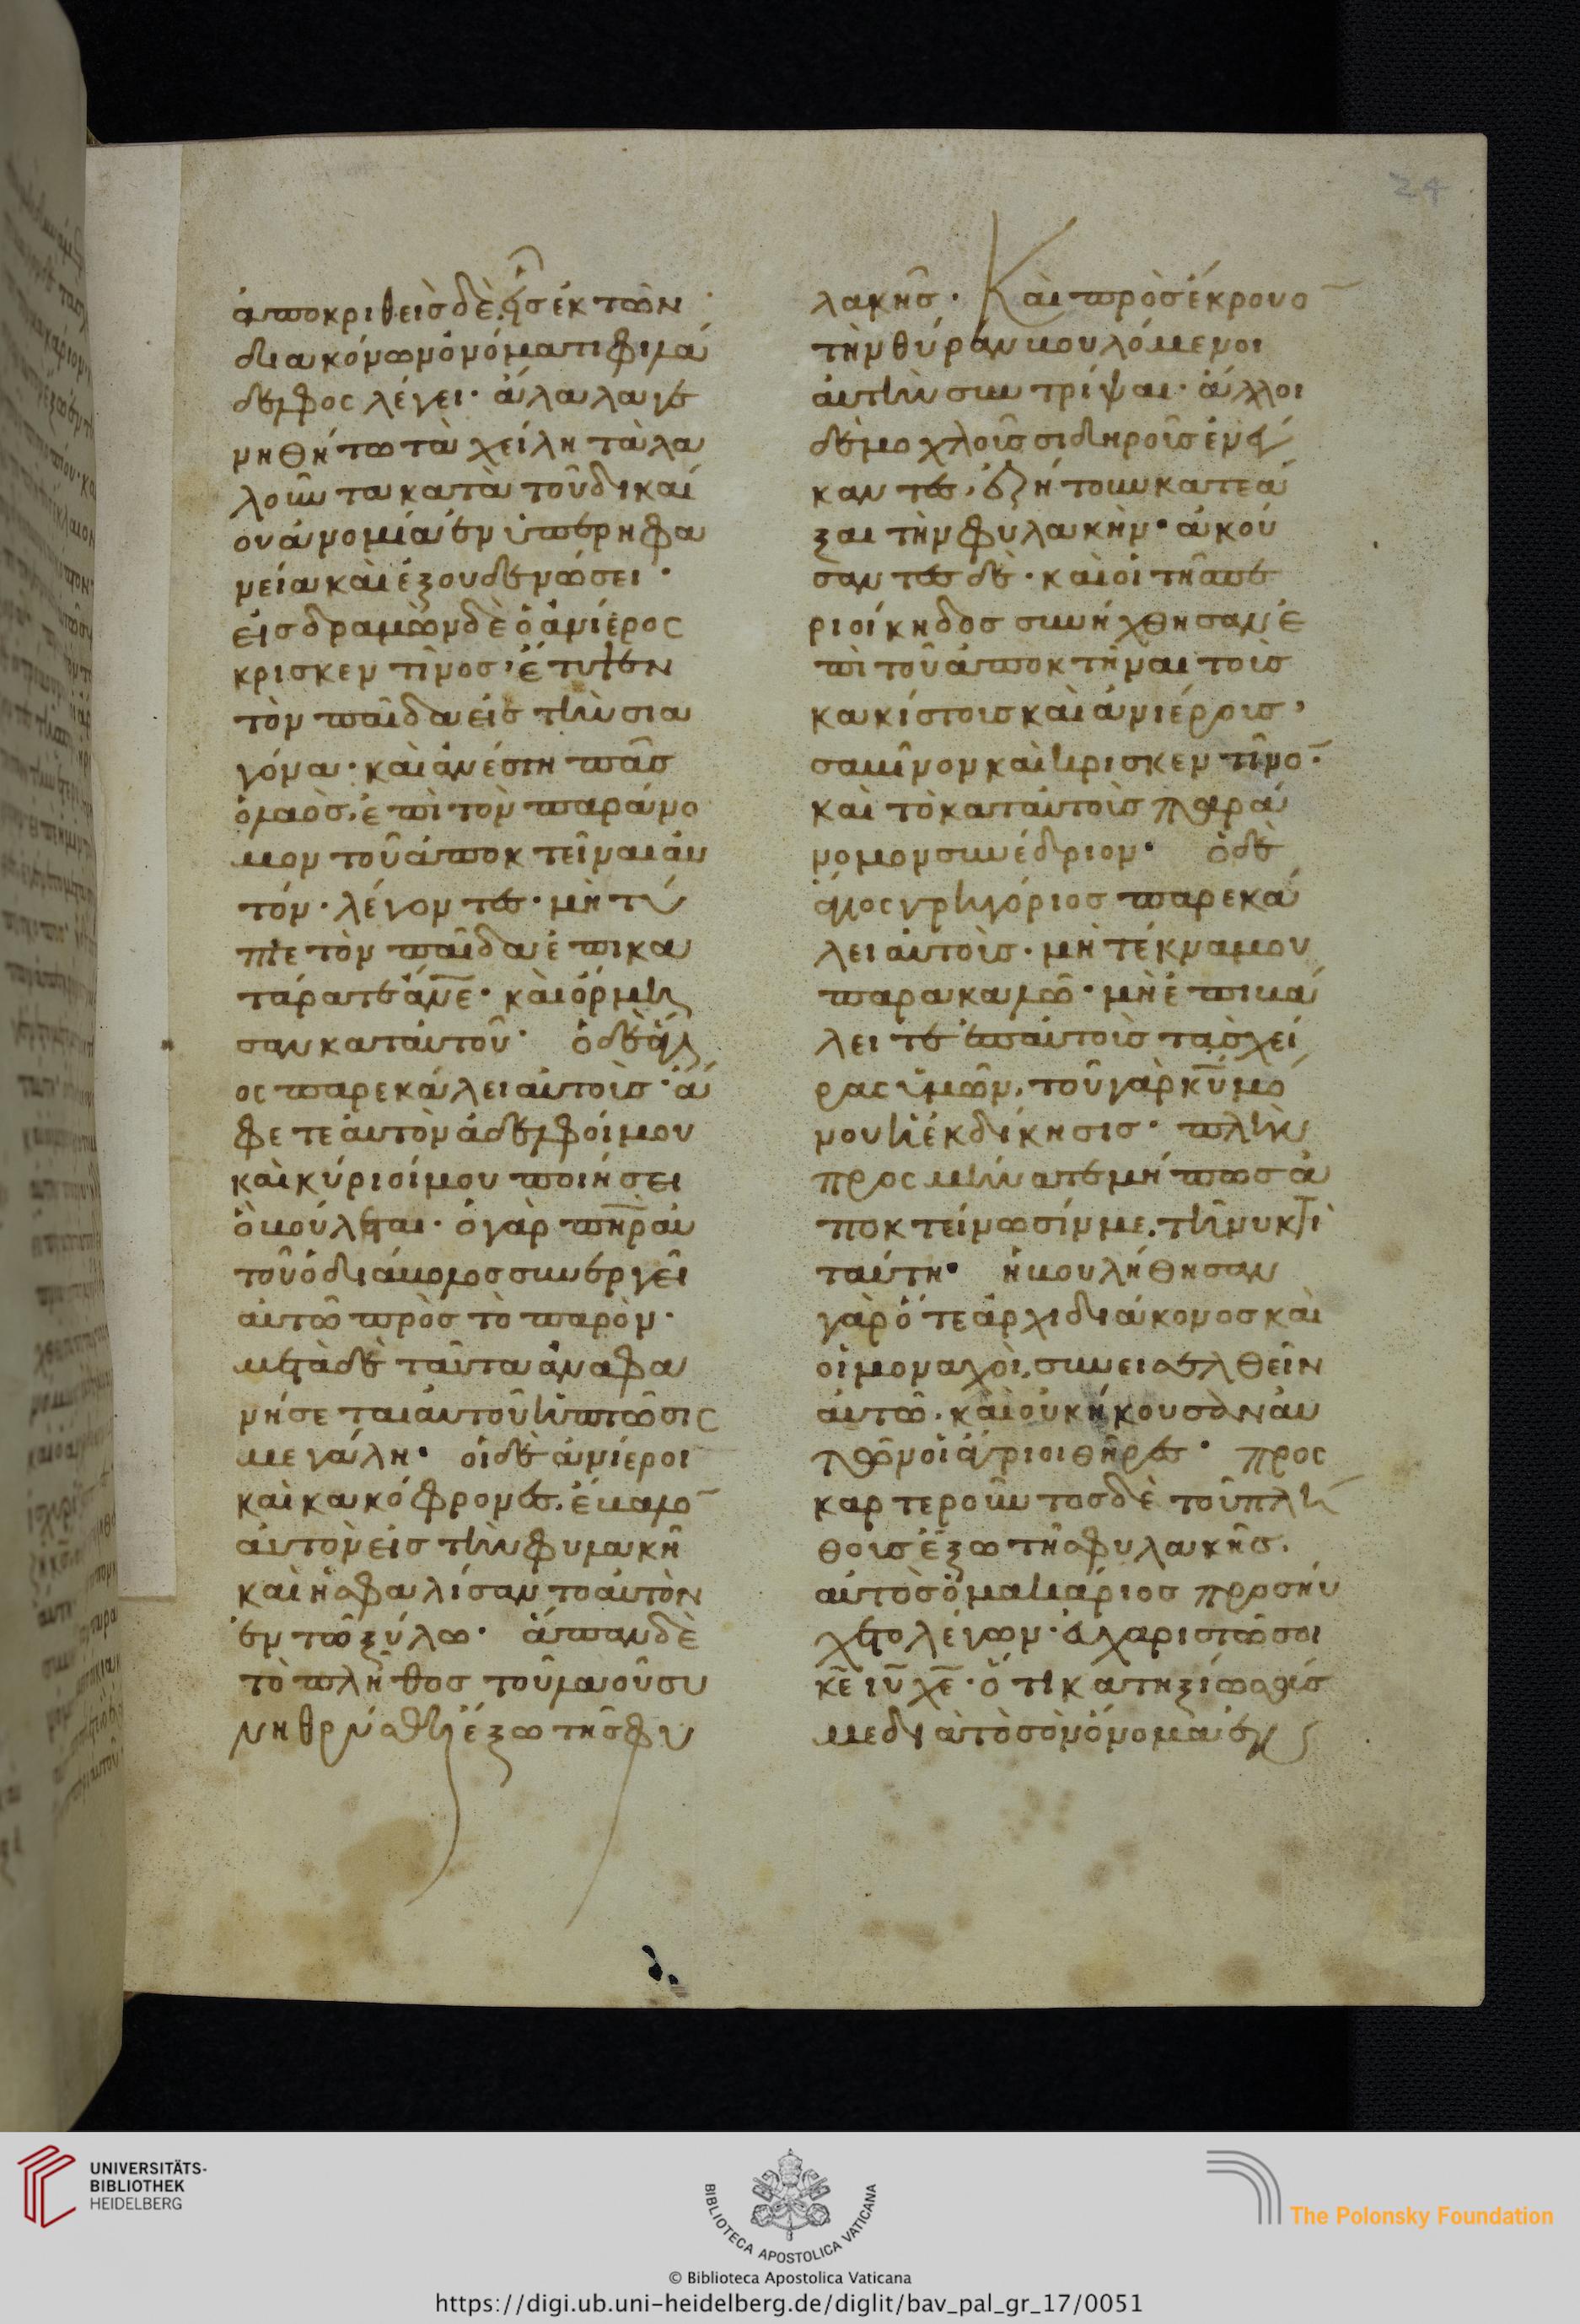 ἀποκριθεὶς δὲ εἷς ἐκ τῶν
διακόνων ὀνόματι φιλά
δελφος λέγει· ἄλαλα γε
νηθήτω τὰ χείλη τὰ λα
λοῦντα κατὰ τοῦ δικαί
ου ἀνομίαν ἐν ὑπερηφα
νεία καὶ ἐξουδενώσει·
εἰσδραμὼν δὲ ὁ ἀνίερος
κρισκεντῖνος, ἔτυψεν
τὸν παῖδα εἰς τὴν σια
γόνα· καὶ ἀνέστη πᾶς
ὁ λαὸς, ἐπὶ τὸν παράνο
μον τοῦ ἀποκτεῖναι αὐ
τόν· λέγοντες· μὴ τύ
πτε τὸν παῖδα ἐπικα
τάρατε ἄν̅ε̅· καὶ ὅρμη
σαν κατ αὐτοῦ· ὁ δὲ ἅγι
ος παρεκάλει αὐτοὺς· ἄ
φετε αὐτὸν ἀδελφοί μου
καὶ κύριοί μου ποιήσει
ὃ βούλεται· ὁ γὰρ π̅η̅ρ̅ αὐ
τοῦ ὁ διάβολος συνεργεῖ
αὐτῶ πρὸς τὸ παρὸν·
μετὰ δὲ ταῦτα ἀναφα
νήσεται αὐτοῦ ἡ πτῶσις
μεγάλη· οἱ δὲ ἀνίεροι
καὶ κακόφρονες, ἔβαλο̅
αὐτὸν εἰς τὴν φυλακὴ
καὶ ἠσφαλίσαντο αὐτὸν
ἐν τῶ ξύλω· ἅπαν δὲ
τὸ πλῆθος τοῦ λαοῦ συ
νηθρύσθη ἔξω τῆς φυ
λακῆς· Καὶ προσέκρουο̅
τὴν θύραν βουλόμενοι
αὐτὴν συντρίψαι· ἄλλοι
δὲ μοχλοῖς σιδηροῖς ἐνέγ
καντες, ἐζήτουν κατεά
ξαι τὴν φυλακὴν· ἀκού
σαντες δὲ· καὶ οἱ τῆς πε
ριοίκηδος συνήχθησαν ἐ
πὶ τοῦ ἀποκτῆναι τοὺς
κακίστους καὶ ἀνιέρους,
σαβῖνον καὶ κρισκεντῖνο̅·
καὶ τὸ κατ αὐτοὺς παρά
νομον συνέδριον· ὁ δὲ
ἅγιος γρηγόριος παρεκά
λει αὐτοὺς· μὴ τέκνα μου
παρακαλῶ· μὴ ἐπιβά
λειτε ἐπ αὐτοὺς τὰς χεί
ρας ὑμῶν, τοῦ γὰρ κ̅υ̅ μό
νου ἡ ἐκδίκησις· πλὴν
προσμήνατε μή πως ἀ
ποκτείνωσίν με, τῆ νυκτὶ
ταύτη· ἠβουλήθησαν
γὰρ ὅ τε ἀρχιδιάκονος καὶ
οἱ μοναχοὶ, συνεισελθεῖν
αὐτῶ· καὶ οὐκ ἤκουσαν αὐ
τῶν οἱ ἄγριοι θῆρες· προσ
καρτεροῦντος δὲ τοῦ πλή
θους ἔξω τῆς φυλακῆς·
αὐτὸς ὁ μακάριος προσηύ
χετο λέγων· εὐχαριστῶ σοι
κ̅ε̅ ι̅υ̅ χ̅ε̅· ὅτι κατηξίωσάς
με διὰ τὸ σὸν ὄνομα ἐν
24
UNIVERSITÄTS-
BIBLIOTHEK
HEIDELBERG
BIBLIOTECA APOSTOLICA VATICANA
The Polonsky Foundation
© Biblioteca Apostolica Vaticana
https://digi.ub.uni-heidelberg.de/diglit/bav_pal_gr_17/0051